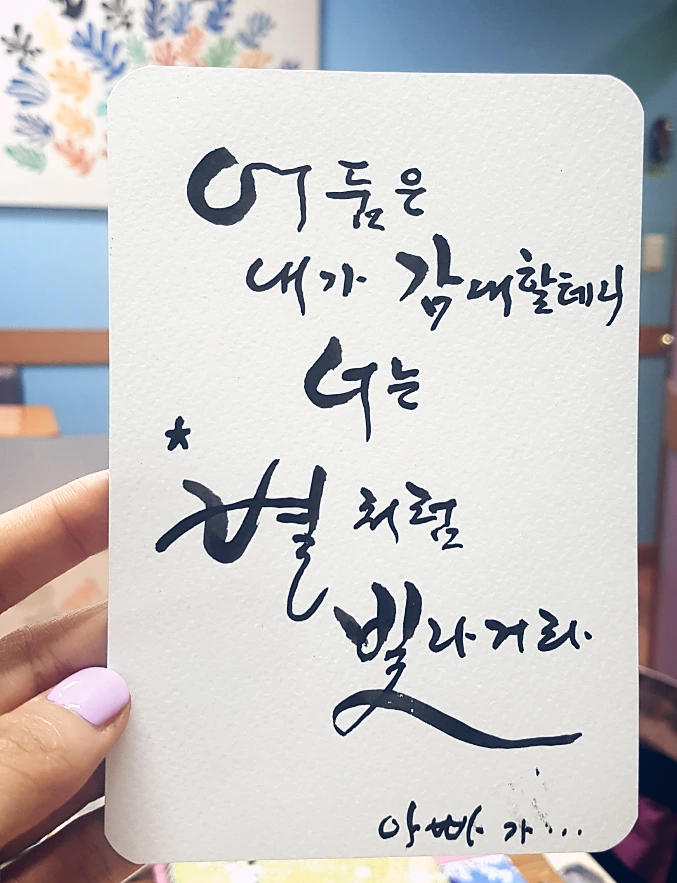 어둠은
내가 감내할테니
너는
별처럼
빛나거라.
아빠가...